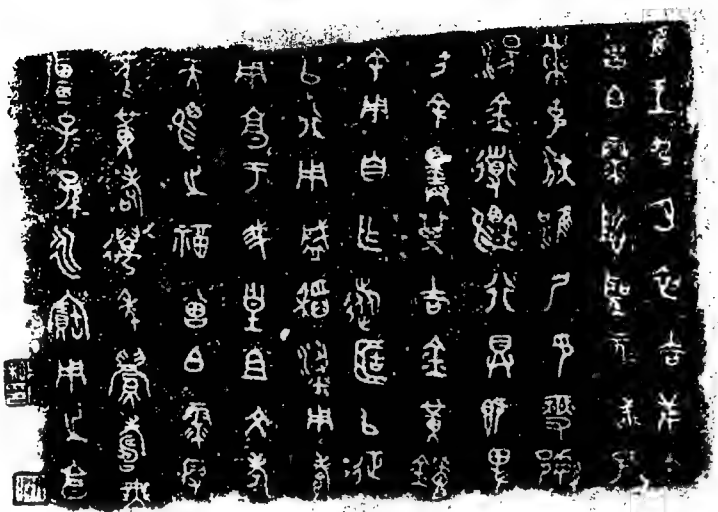 隹王九月初吉庚午
曾白霥哲聖元武孔
黹克狄淮夷印燮繁
湯金道錫行具既卑
方余擇其吉金黃鑪
余用自乍旅簠以征
以行用盛稻粱用孝
用享于我皇且文考
天賜之福曾白霥叚
不黃耇萬年眉壽無
疆子孫永寶用之享